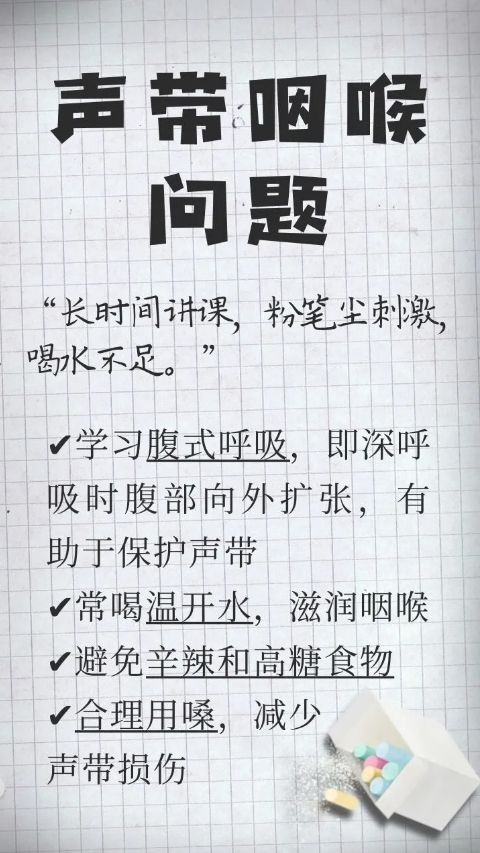 声带咽喉
问题
“长时间讲课，粉笔尘刺激，
喝水不足。”
✔学习腹式呼吸，即深呼
吸时腹部向外扩张，有
助于保护声带
✔常喝温开水，滋润咽喉
✔避免辛辣和高糖食物
✔合理用嗓，减少
声带损伤